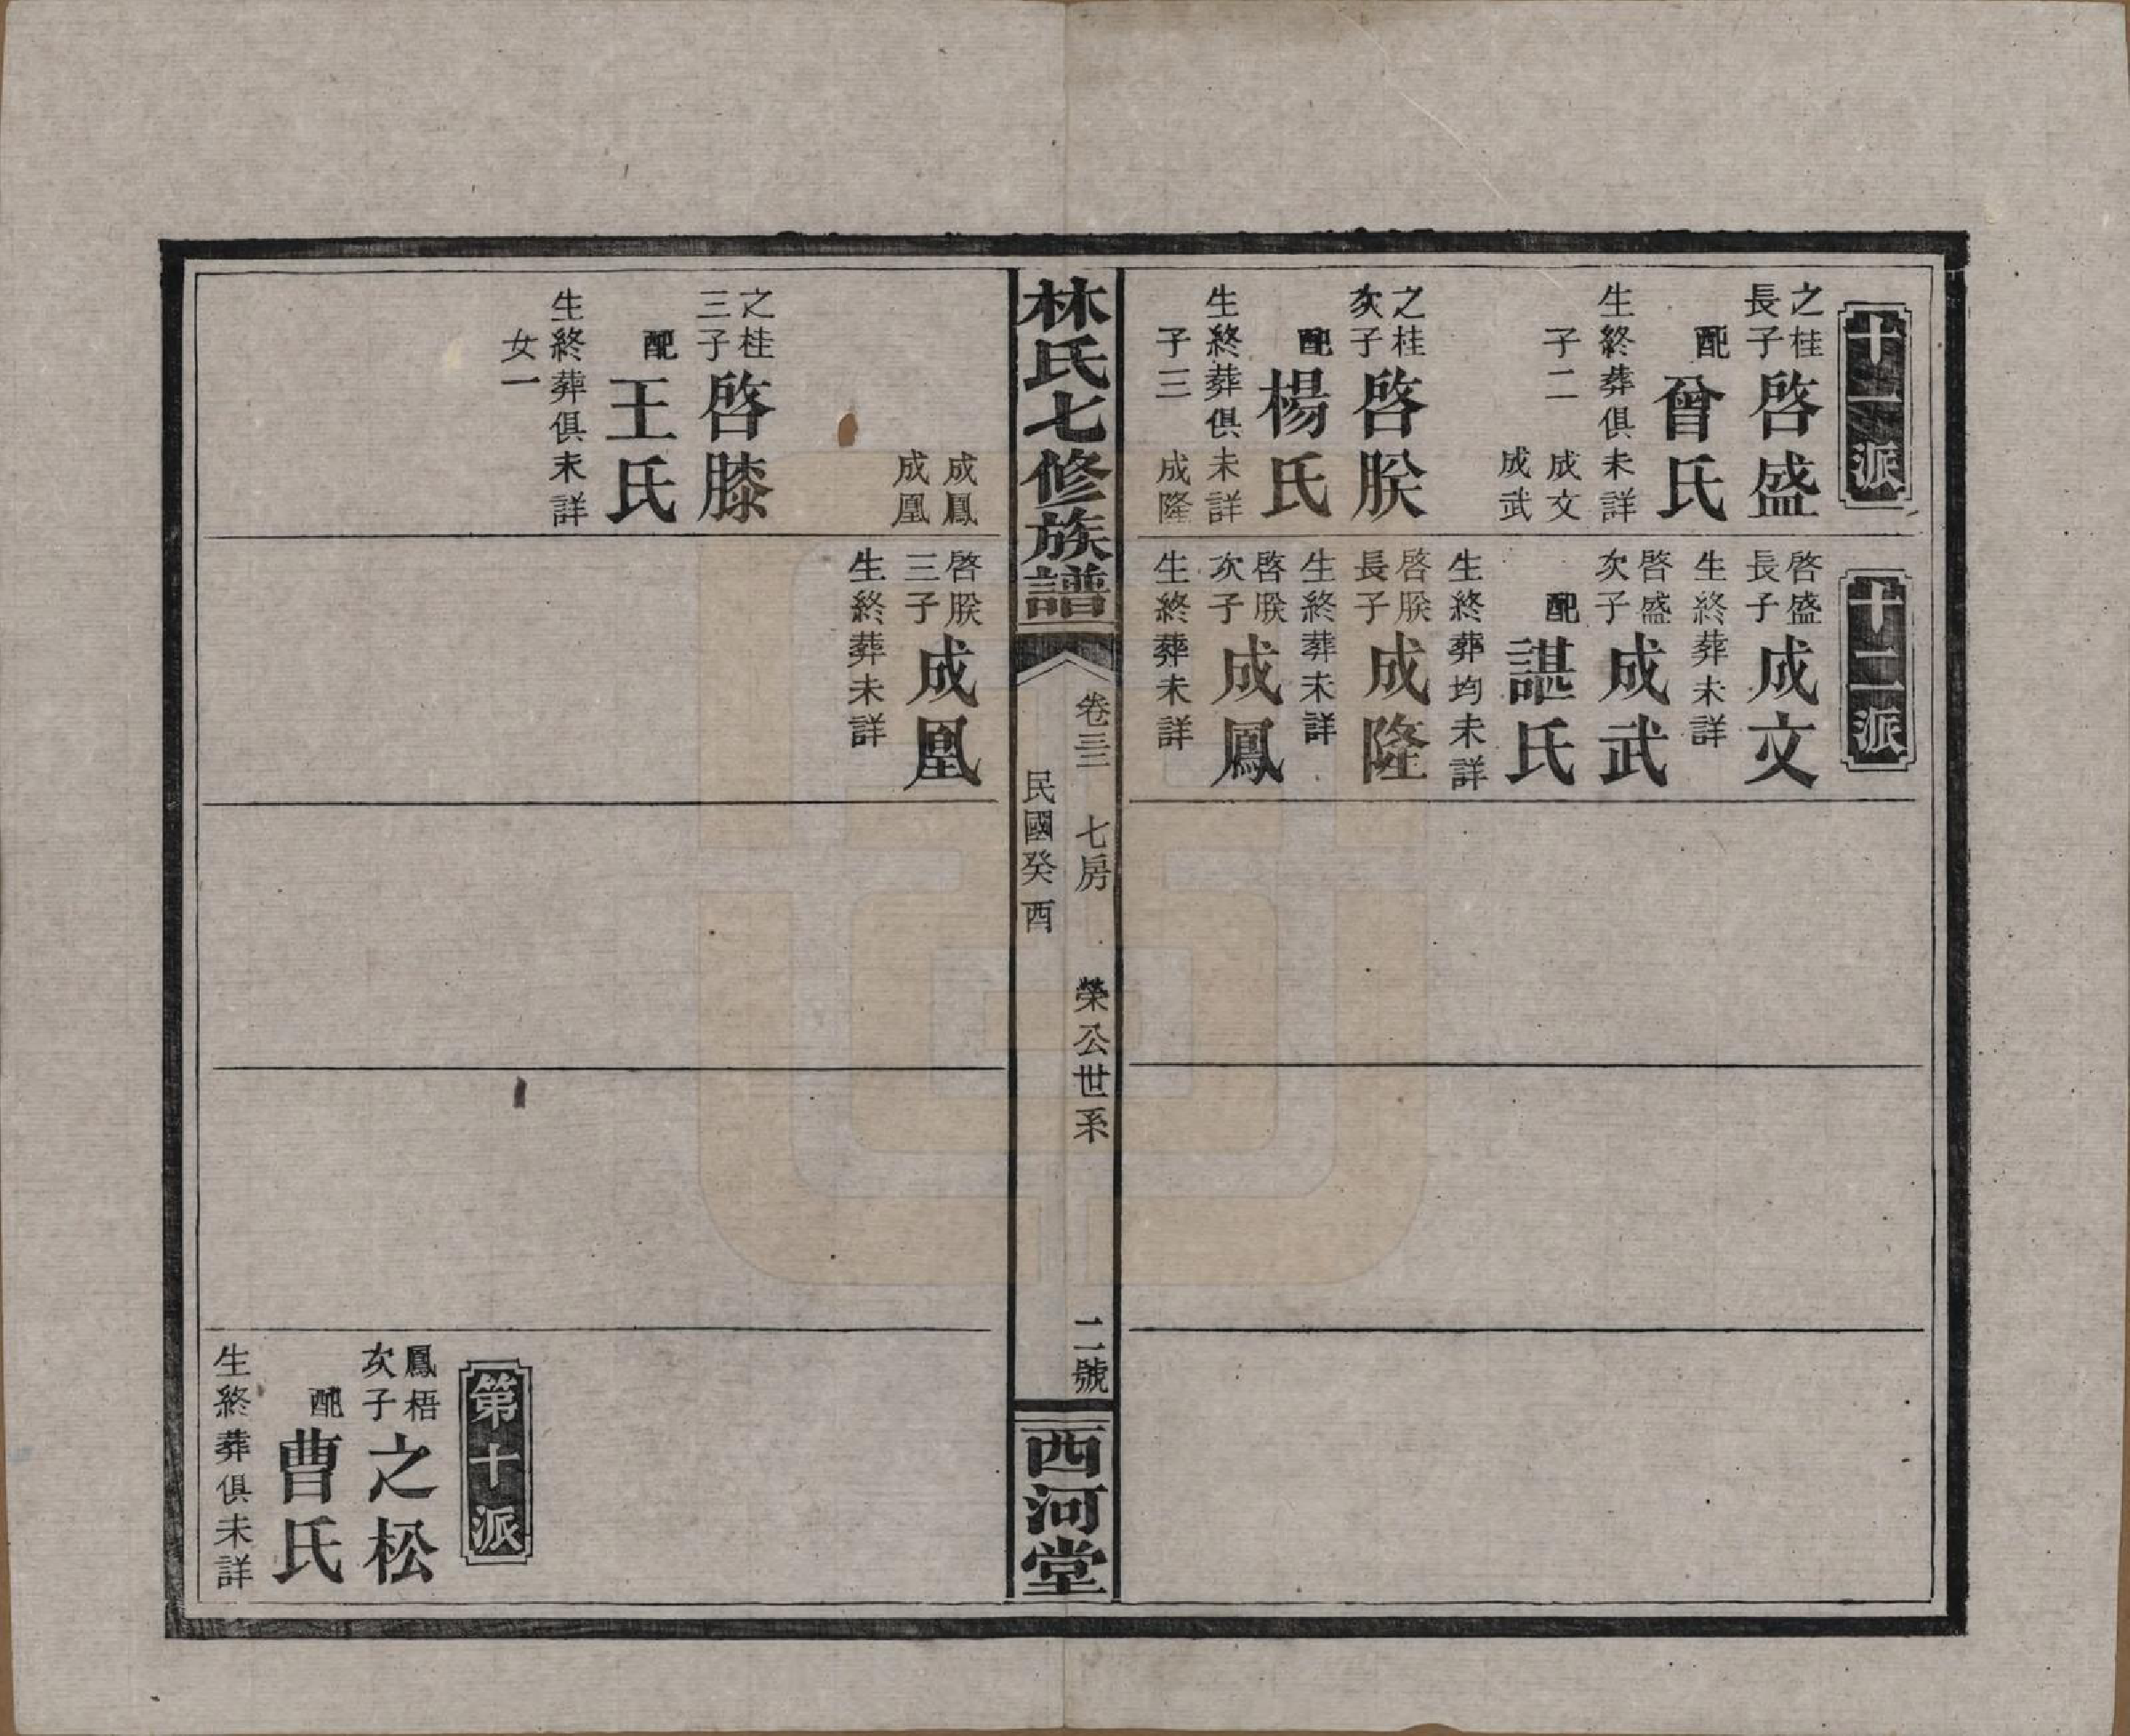 十一派
之桂
長子
啓盛
配
曾氏
生終葬俱未詳
子二
成文
成武
之桂
次子
啓朕
配
楊氏
生終葬俱未詳
子三
成隆
十二派
啓盛
長子
成文
生終葬未詳
啓盛
次子
成武
配
諶氏
生終葬均未詳
啓朕
長子
成隆
生終葬未詳
啓朕
次子
成鳳
生終葬未詳
林氏七修族譜
卷三三 七房 榮公世系 二號
民國癸酉
西河堂
成鳳
成凰
之桂
三子
啓膝
配
王氏
生終葬俱未詳
女一
啓朕
三子
成凰
生終葬未詳
第十派
鳳梧
次子
之松
配
曹氏
生終葬俱未詳